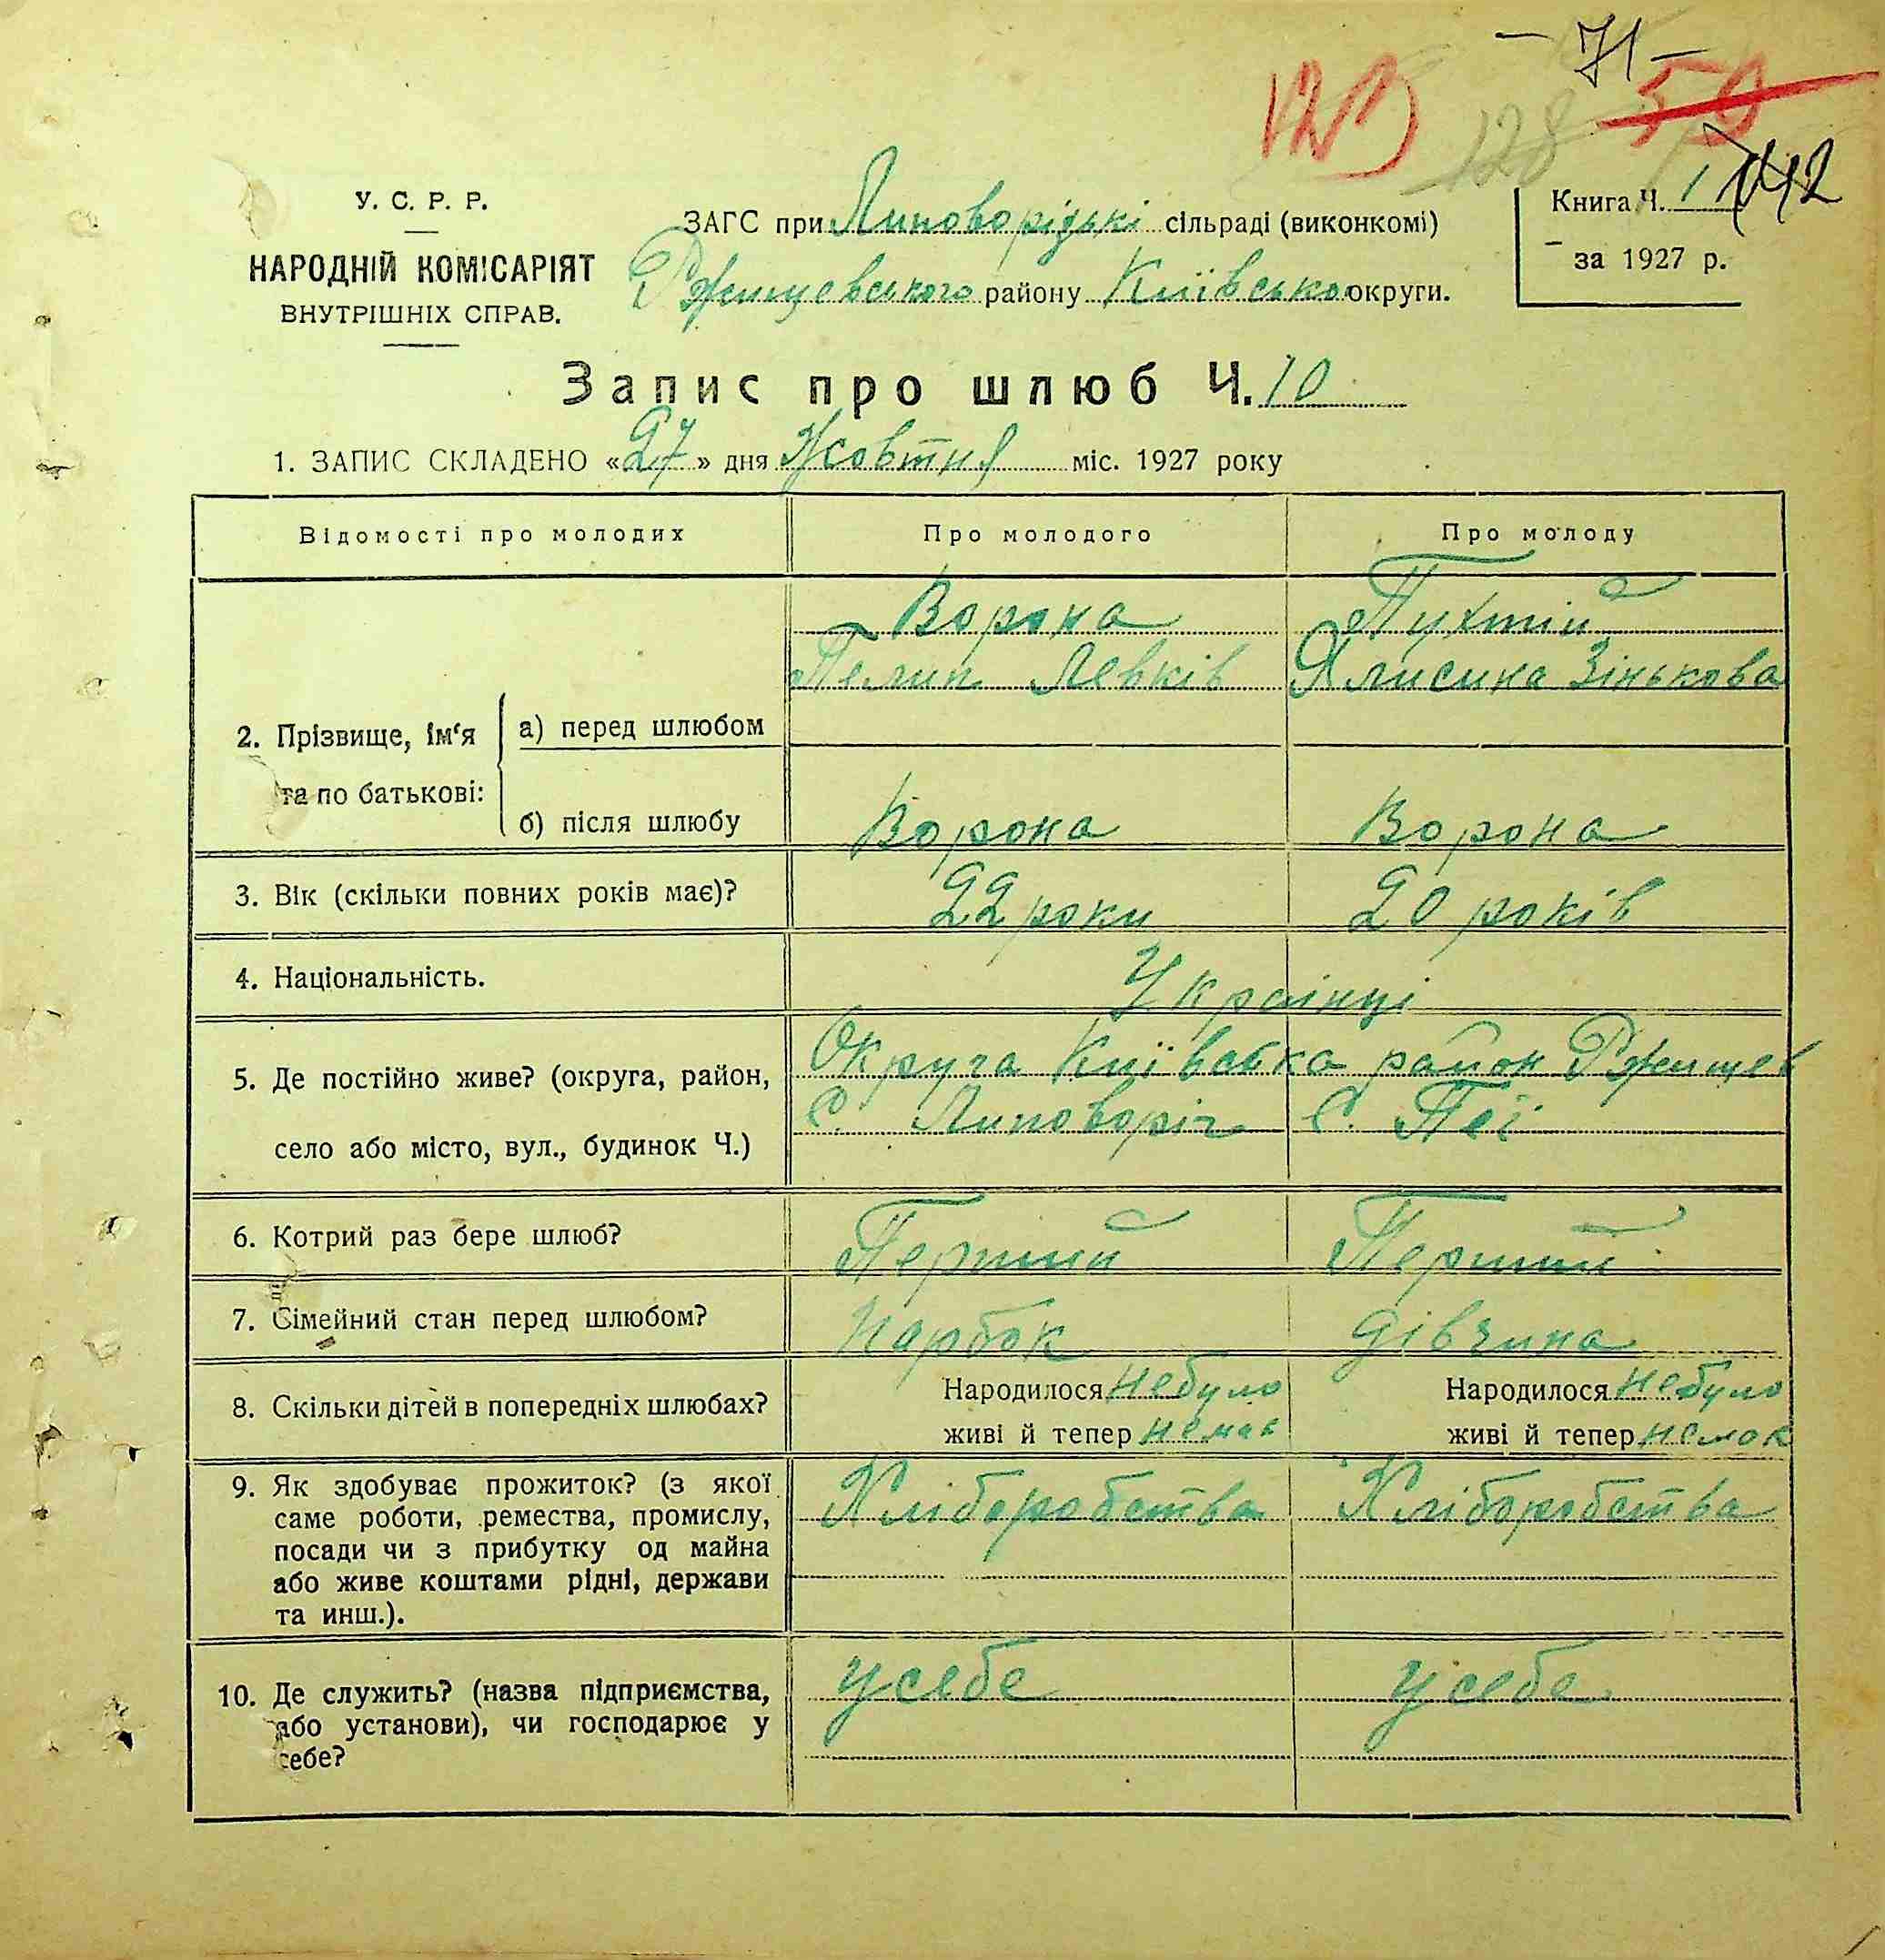 - 71 -
123 128 50
У. С. Р. Р.
НАРОДНІЙ КОМІСАРІЯТ
ВНУТРІШНІХ СПРАВ.
ЗАГС при Липоворізькі сільраді (виконкомі)
Ржищевського району Київсько округи.
Книга Ч. 1 142
за 1927 р.
Запис про шлюб Ч. 10
1. ЗАПИС СКЛАДЕНО «27» дня Жовтня міс. 1927 року
Відомості про молодих Про молодого Про молоду
2. Прізвище, ім‘я та по батькові:
а) перед шлюбом
Ворона Пухтій
Пелип Левків Ялисика Зінькова
б) після шлюбу Ворона Ворона
3. Вік (скільки повних років має)? 22 роки 20 років
4. Національність. Українці
5. Де постійно живе? (округа, район,
село або місто, вул., будинок Ч.)
Округа Київська район Ржищев
с. Липоворіг с. Теї
6. Котрий раз бере шлюб? Перший Перший
7. Сімейний стан перед шлюбом? Парбок дівчина
8. Скільки дітей в попередніх шлюбах?
Народилося небуло Народилося небуло
живі й тепер немає живі й тепер немає
9. Як здобуває прожиток? (з якої
саме роботи, ремества, промислу,
посади чи з прибутку од майна
або живе коштами рідні, держави
та инш.).
Хліборобства Хліборобства
10. Де служить? (назва підприємства,
або установи), чи господарює у
себе?
усебе усебе